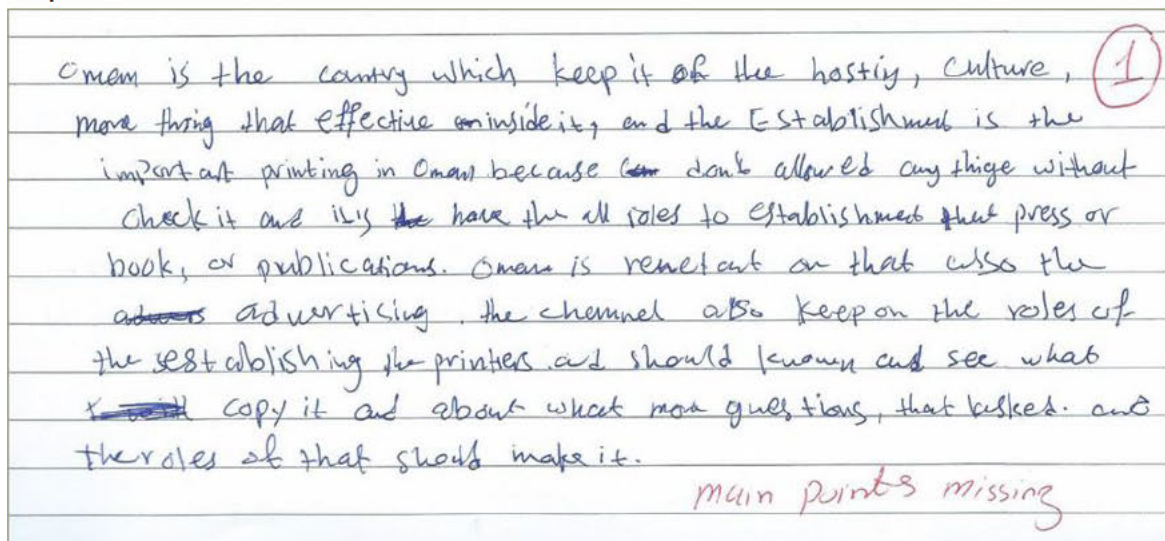 Omem is the cantry which keep it of the hostiy, culture, 1
more thring that effective inside it, and the Establishment is the
important printing in Oman because don't allowed any thige without
check it and it's have the all roles to establishment that press or
book, or publications. Oman is on that also the
advertising. the chemnel also keep on the roles of
the the printers and should known and see what
copy it and about what more questions, that asked. and
the roles of that should make it.
main points missing